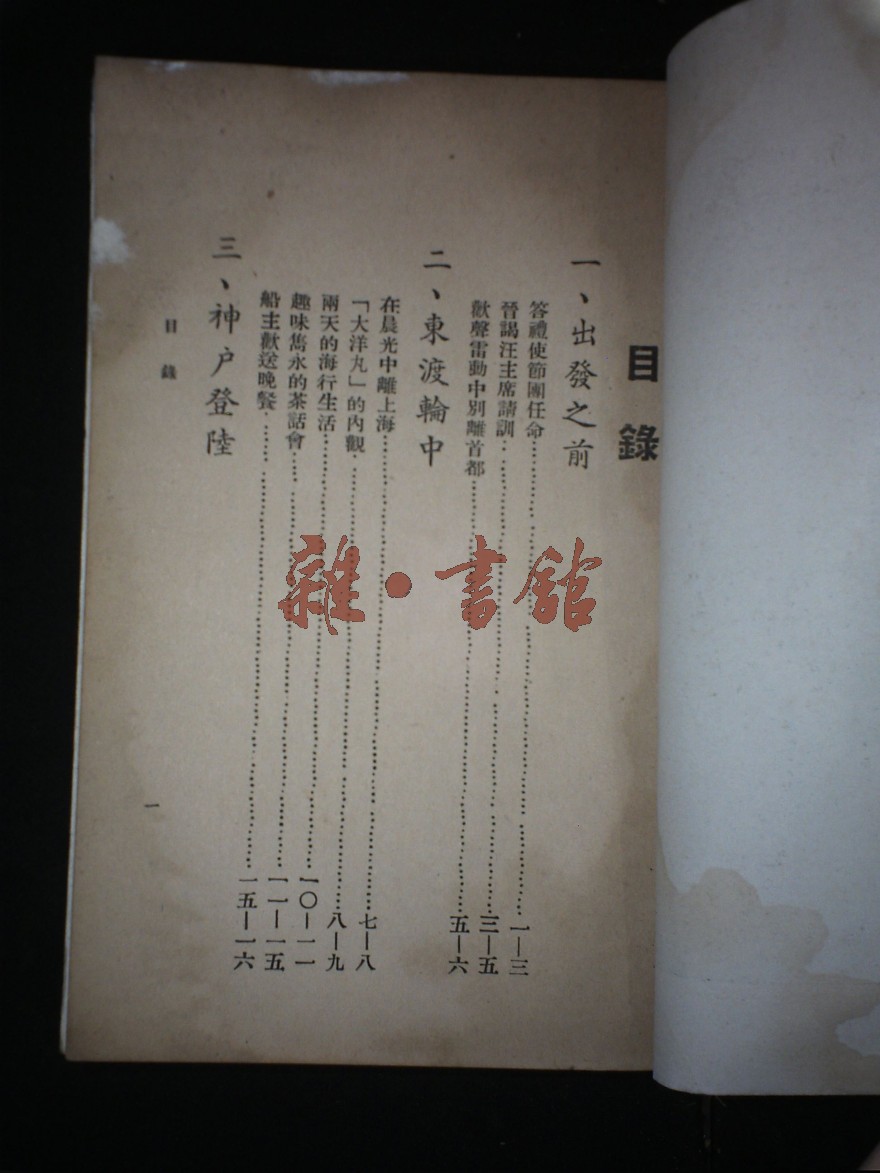 目錄
一、出發之前
答禮使節團任命……一—三
晉謁汪主席請訓……三—五
歡聲雷動中別離首都……五—六
二、東渡輪中
在晨光中離上海……七—八
「大洋丸」的內觀……八—九
兩天的海行生活……一〇—一一
趣味雋永的茶話會……一一—一五
船主歡送晚餐……一五—一六
三、神戶登陸
目錄
一
雜·書館